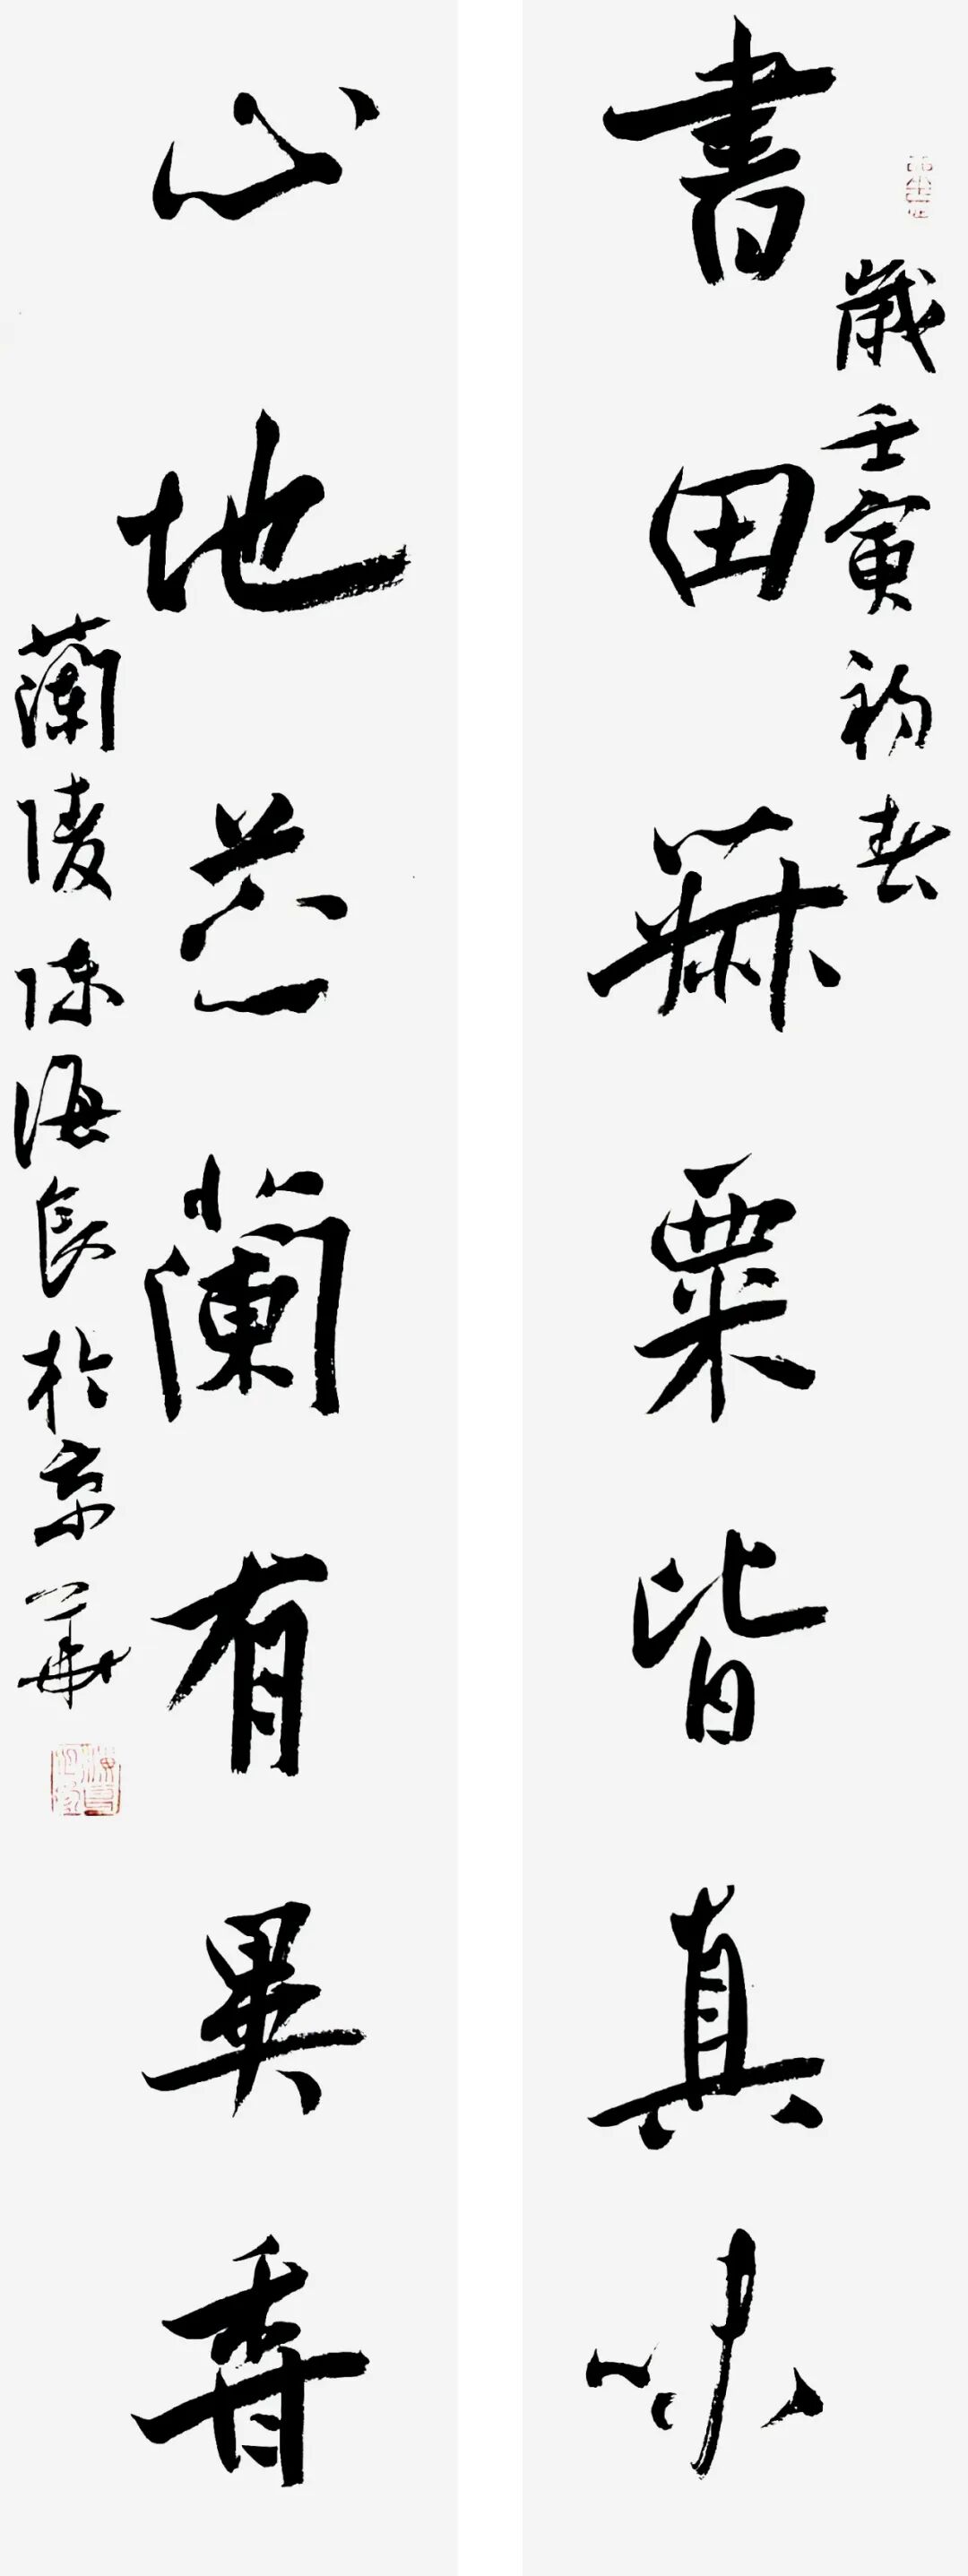 歲壬寅初春
書田菽粟皆真味
心地芝蘭有異香
蘭陵陳海良於京華